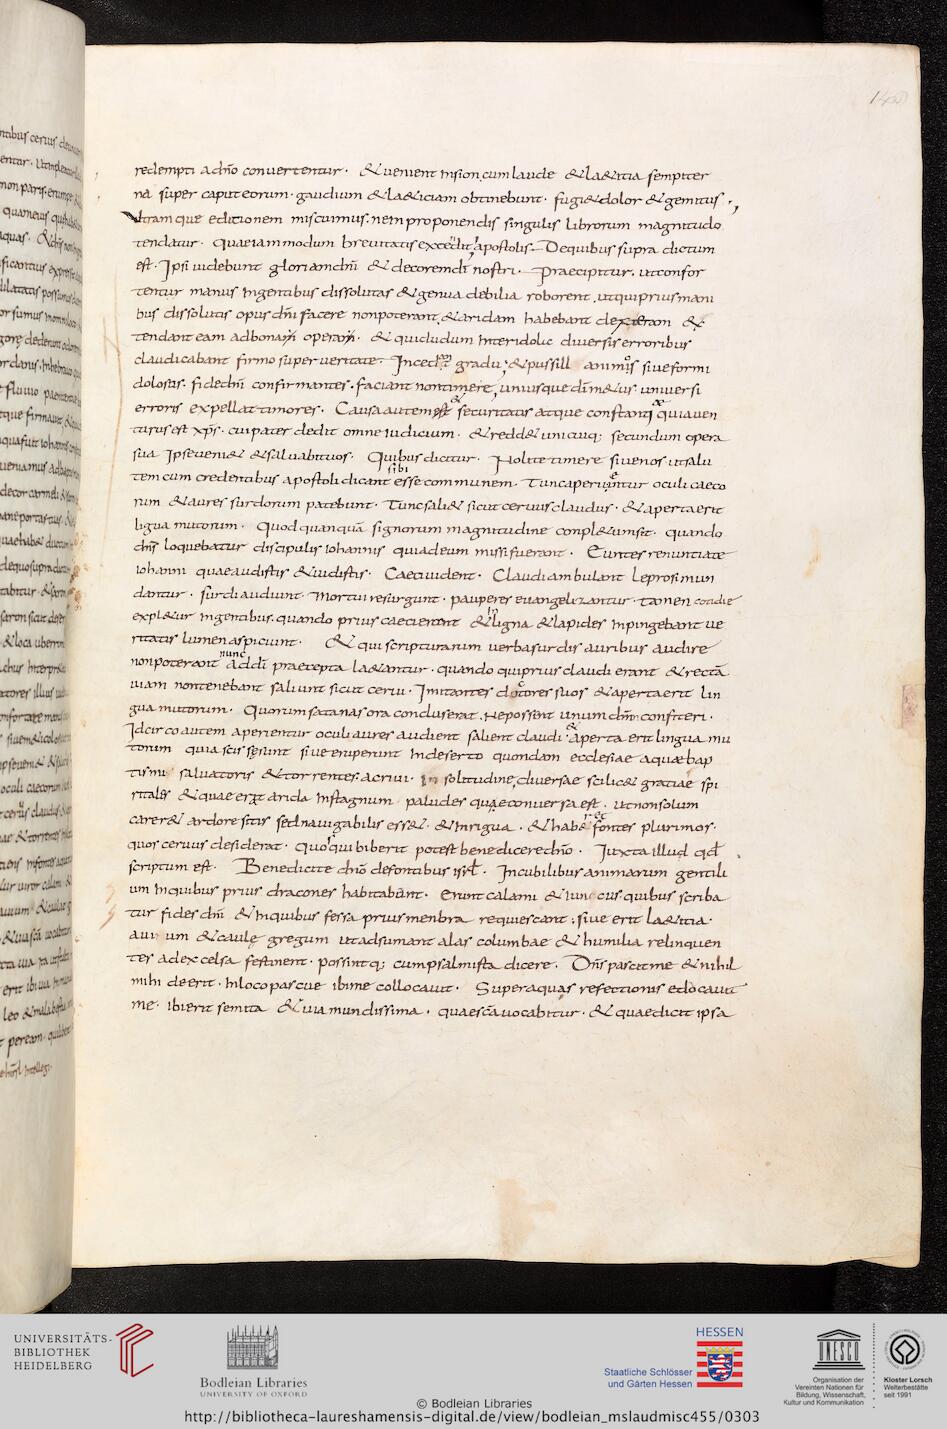 redempti adno convertentur · & uenient insion cum laude & laetitia sempiter
na super caput eorum · gaudium & laetitiam obtinebunt · fugiet dolor & gemitus ·
utramque editionem miscuimus · nem proponendis singulis librorum magnitudo
tendatur · Quae iam modum brevitatis excedit apostolis Dequibus supra dictum
est · Ipsi uidebunt gloriam dni & decorem di nostri · Praecipitur · ut confor
tentur manus in gentibus dissolutas & genua debilia roborent · ut qui prius mani
bus dissolutis opus dni facere non poterant · & aridam habebant dexteram &
tendant eam ad bonam operam · & qui dudum inter idola diversis erroribus
claudicabant firmo super veritate · Incedant gradu · & pussill animos sive formi
dolosus · fide dni confirmantes · faciant non timere · unius que di metus universi
erroris expellat timores · Causa autem est & securitatis atque constantiae quia ven
turus est xps · cui pater dedit omne iudicium · & reddet unicuiq; secundum opera
sua Ipse veniet & salvabit vos · Quibus dicitur · Nolite timere sive nos ut salu
tem cum credentibus apostoli dicant sibi esse communem · Tunc aperientur oculi caeco
rum & aures surdorum patebunt · Tunc saliet sicut cervus claudus · & aperta erit
ligua mutorum · Quod quanquam signorum magnitudine conpletum sit · quando
dns loquebatur discipulis iohannis qui adeum missi fuerant · Euntes renuntiate
iohanni quae audistis & vidistis · Caeci vident · Claudi ambulant leprosi mun
dantur · surdi audiunt · Mortui resurgunt · pauperes evangelizantur · tamen cotidie
expletur in gentibus · quando prius caeci erant & in ligna & lapides inpingebant ve
ritatis lumen aspiciunt · & qui scripturarum verba surdis auribus audire
non poterant nunc ad di praecepta laetantur · quando qui prius claudi erant & rectam
viam non tenebant saliunt sicut cervi · Imitantes doctores suos & aperta erit lin
gua mutorum · Quorum satanas ora concluserat · Ne possent unum dnm confiteri ·
Idcirco autem aperientur oculi aures audient salient claudi & aperta erit lingua mu
torum quia scissae sunt sive eruperunt in deserto quondam ecclesiae aquae bap
tismi salvatoris & torrentes acrivi · in solitudine diversae scilicet gratiae spi
ritales & quae erat arida in stagnum paludes quae conversa est · ut non solum
careret ardore sitis sed navigabilis esset · & inrigua · & haberet fontes plurimos ·
quos cervus desiderat · Quos qui biberit potest benedicere dno · Iuxta illud qd
scriptum est · Benedicite dno de fontibus isrl · Incubilibus animarum gentili
um in quibus prius dracones habitabant · Erunt calami & iuncus quibus scriba
tur fides dni & in quibus fessa prius menbra requiescant ; sive erit laetitia ·
avium & caulę gregum ut adsumant alas columbae & humilia relinquen
tes ad excelsa festinent · possintq; cum psalmista dicere · Dns pascit me & nihil
mihi deerit · in loco pascue ibi me collocavit · Super aquas refectionis edocavit
me · ibi erit semita & via mundissima · quae sca vocabitur · & quae dicit ipsa
UNIVERSITÄTS-
BIBLIOTHEK
HEIDELBERG
Bodleian Libraries
UNIVERSITY OF OXFORD
HESSEN
Staatliche Schlösser
und Gärten Hessen
UNESCO
Organisation der
Vereinten Nationen für
Bildung, Wissenschaft,
Kultur und Kommunikation
Kloster Lorsch
Welterbestätte
seit 1991
© Bodleian Libraries
http://bibliotheca-laureshamensis-digital.de/view/bodleian_mslaudmisc455/0303